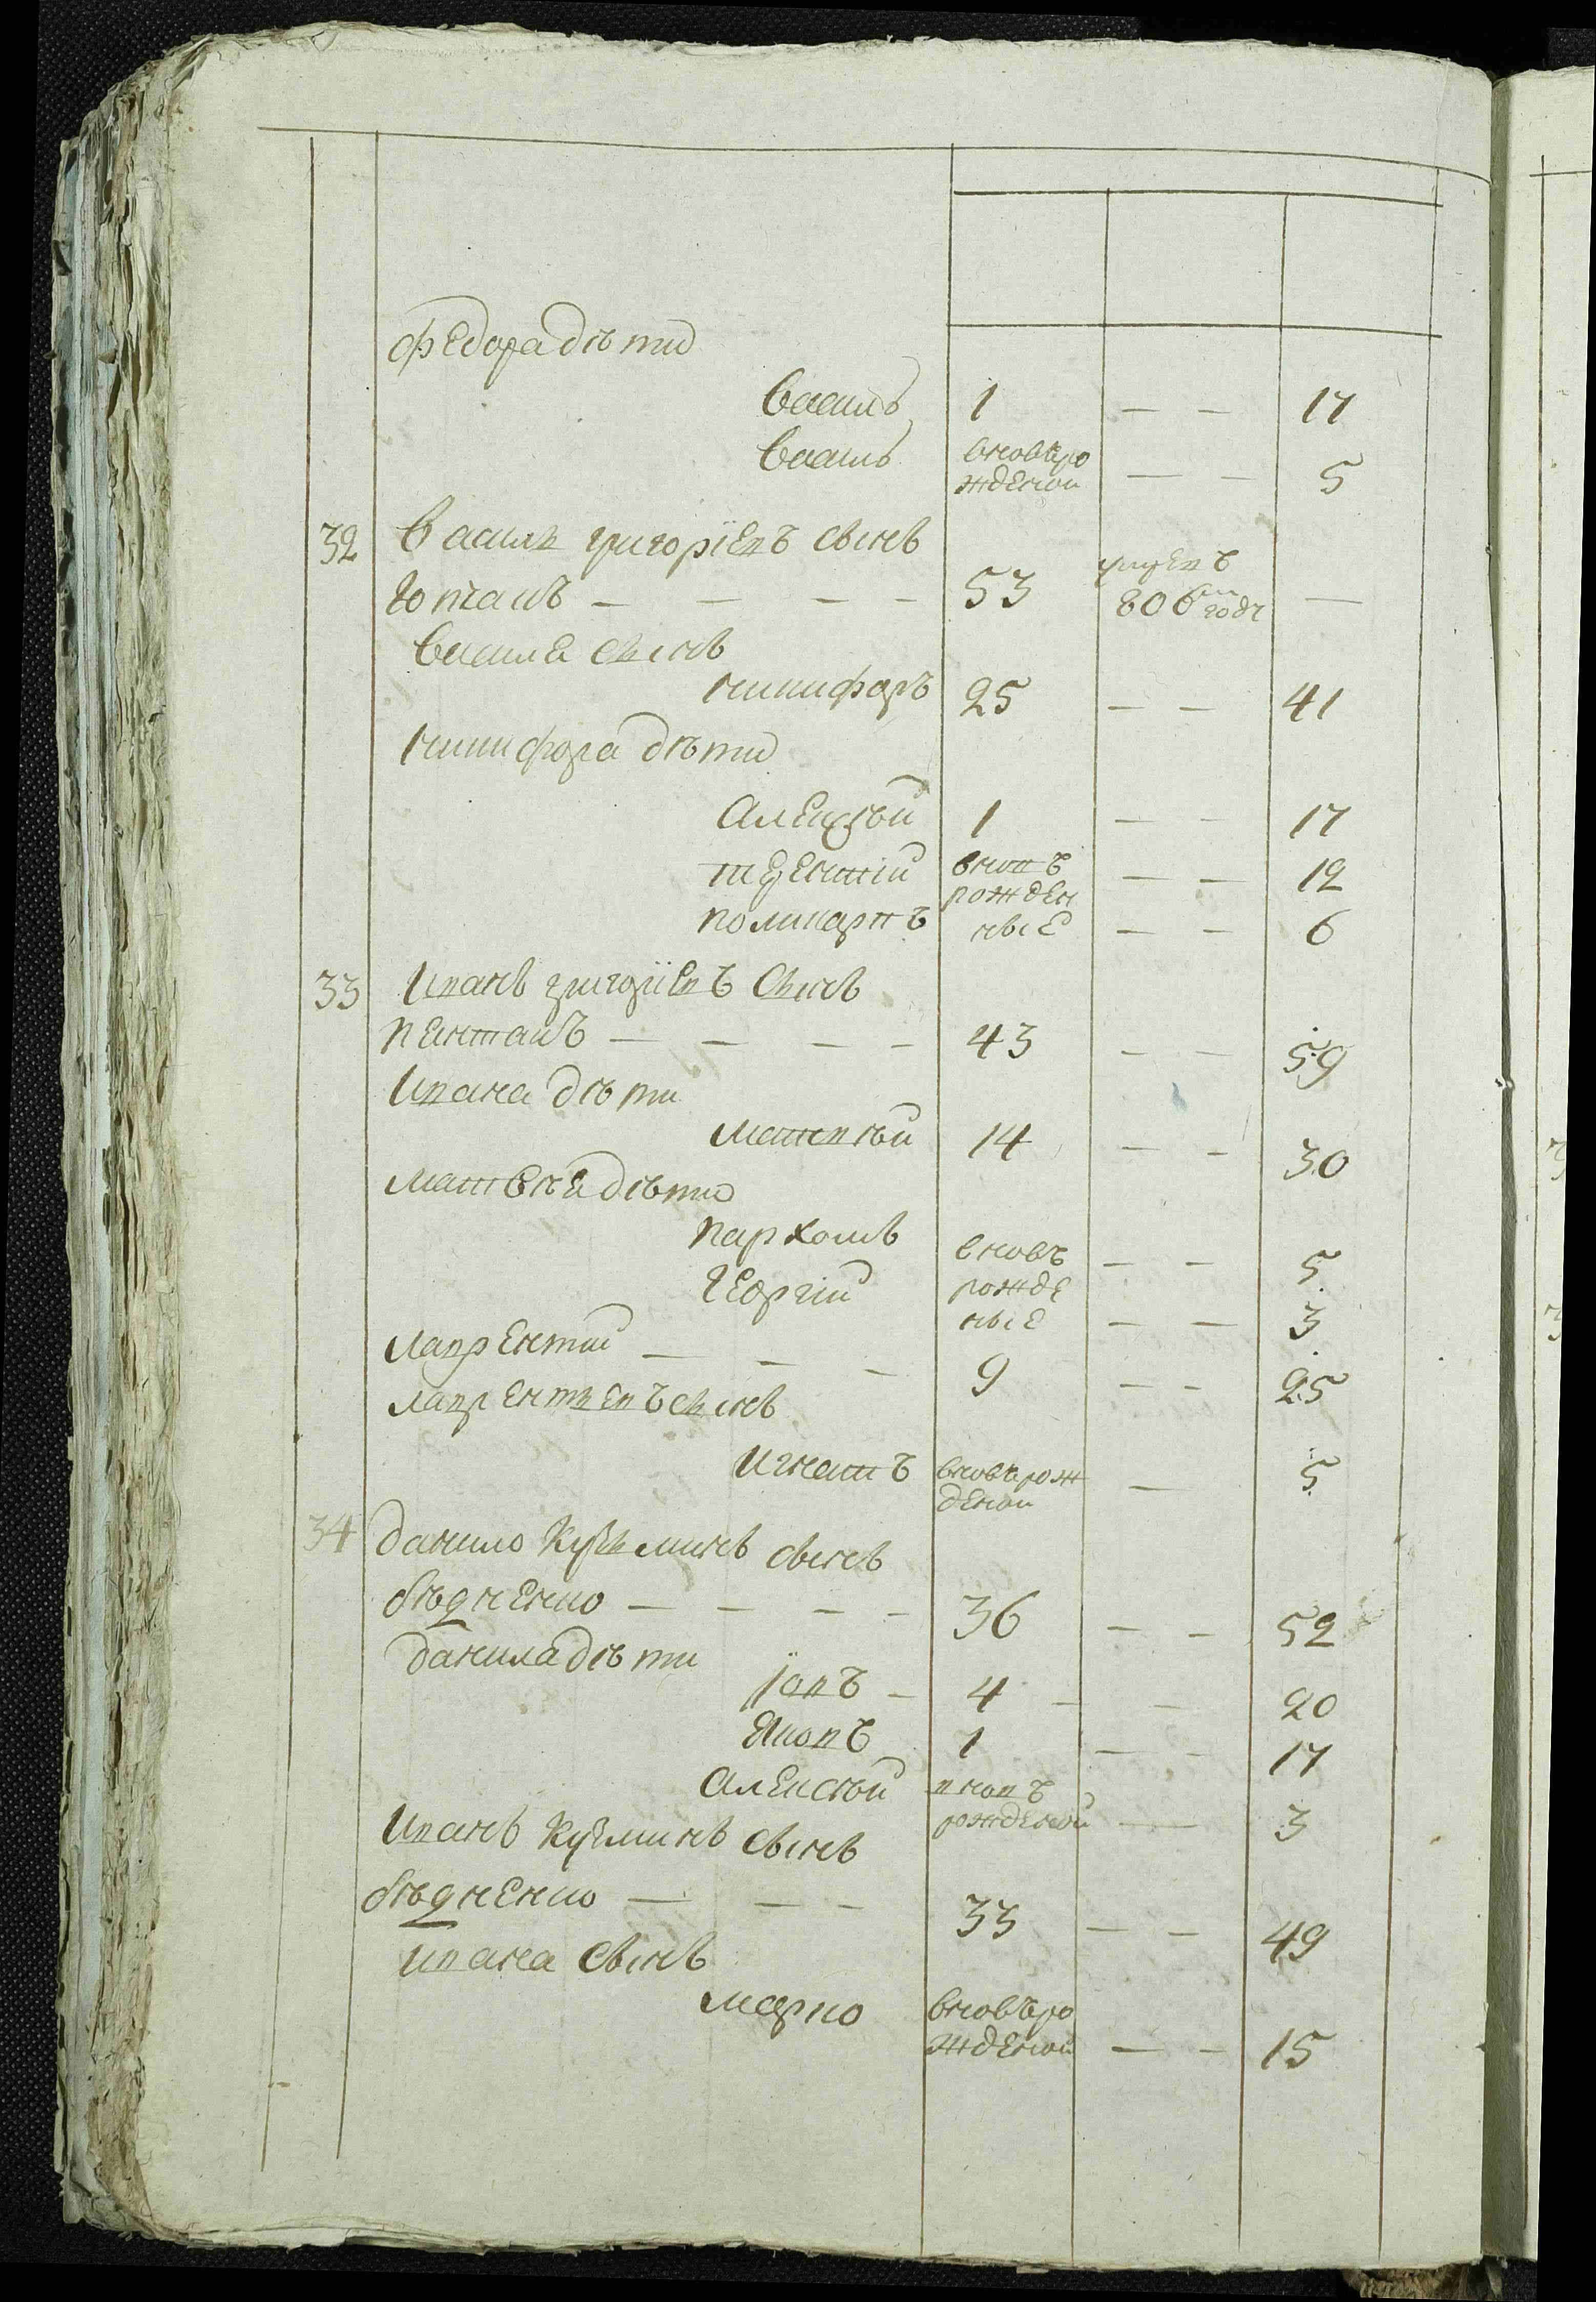 Федора дѣти
Василь 1 — — 17
Василь вновьро
жденой — — 5
32 Василь григоріевъ сынъ
53 умреъ
806 годѣ —
Василя сынъ
никифоръ 25 — — 41
никифора дѣти
Алексѣй 1 — — 17
терентій вновъ — — 12
рожден
поликарпъ ные — — 6
33 Иванъ григоріевъ сынъ
43 — — 59
Ивана дѣти
матвѣй 14 — — 30
матвѣя дѣти
пархомъ вновъ — — 5
георгій рожде
ные — — 3
лаврентій — — — 9 — — 25
лаврентіевъ сынъ
Игнатъ вновърож — 5
деной
34 данило Кузьминъ сынъ
бѣдненко — — — — 36 — — 52
данила дѣти
іовъ — 4 — — 20
Яковъ 1 — — 17
Алексѣй вновъ
рожденой — — 3
Иванъ Кузминъ сынъ
бѣдненко — — — 33 — — 49
ивана сынъ
марко вновъро
жденой — — 15